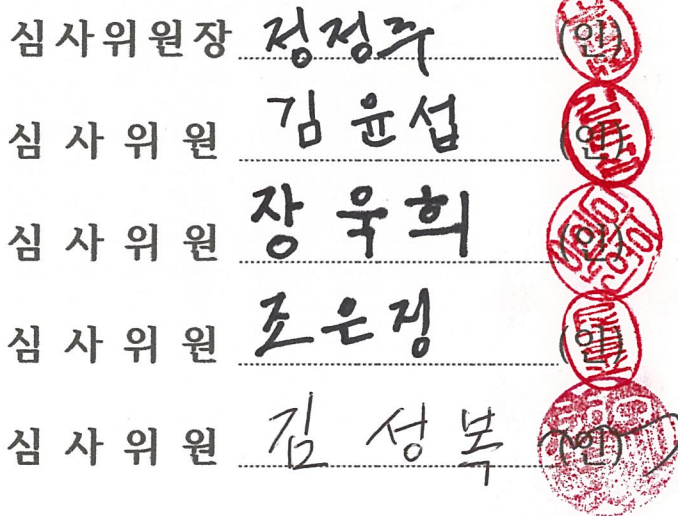 심사위원장 정정주 (인)
심 사 위 원 김 윤 섭 (인)
심 사 위 원 장 욱 희 (인)
심 사 위 원 조은정 (인)
심 사 위 원 김 성 복 (인)